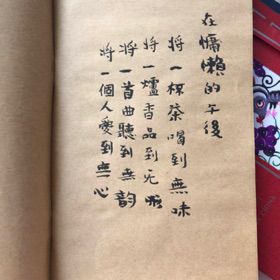 在慵懶的午後
將一杯茶喝到無味
將一爐香品到无
將一首曲聽到無韵
將一個人愛到無心